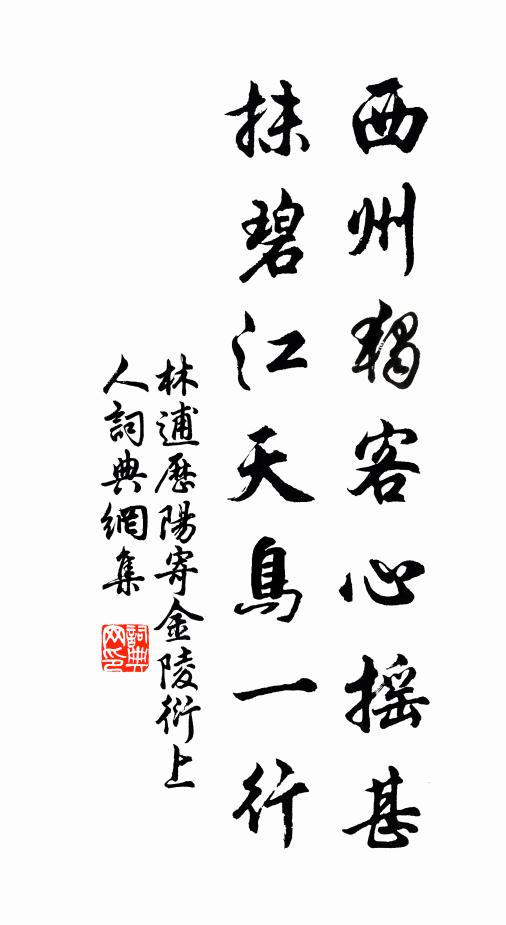 西州獨客心摇甚
抹碧江天鳥一行
林逋歷陽寄金陵衍上
人詞典網集
詞典
网印